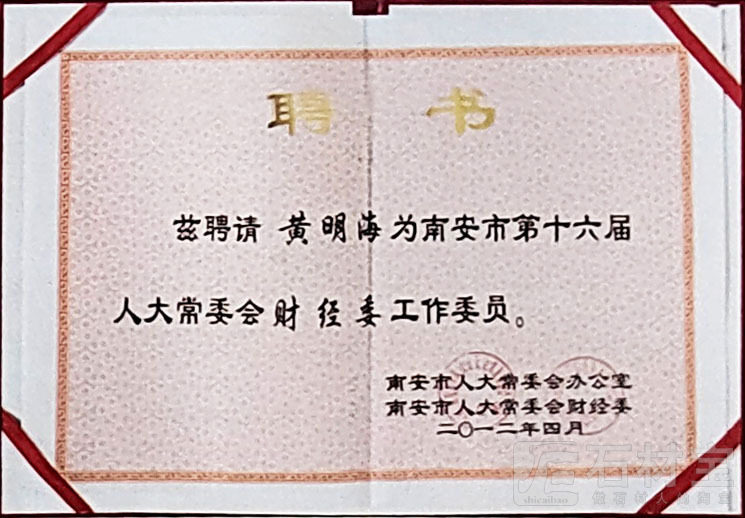 聘书
兹聘请 黄明海为南安市第十六届
人大常委会财经委工作委员。
南安市人大常委会办公室
南安市人大常委会财经委
二〇一二年四月
石材宝
shicaibao
做石材人的淘宝